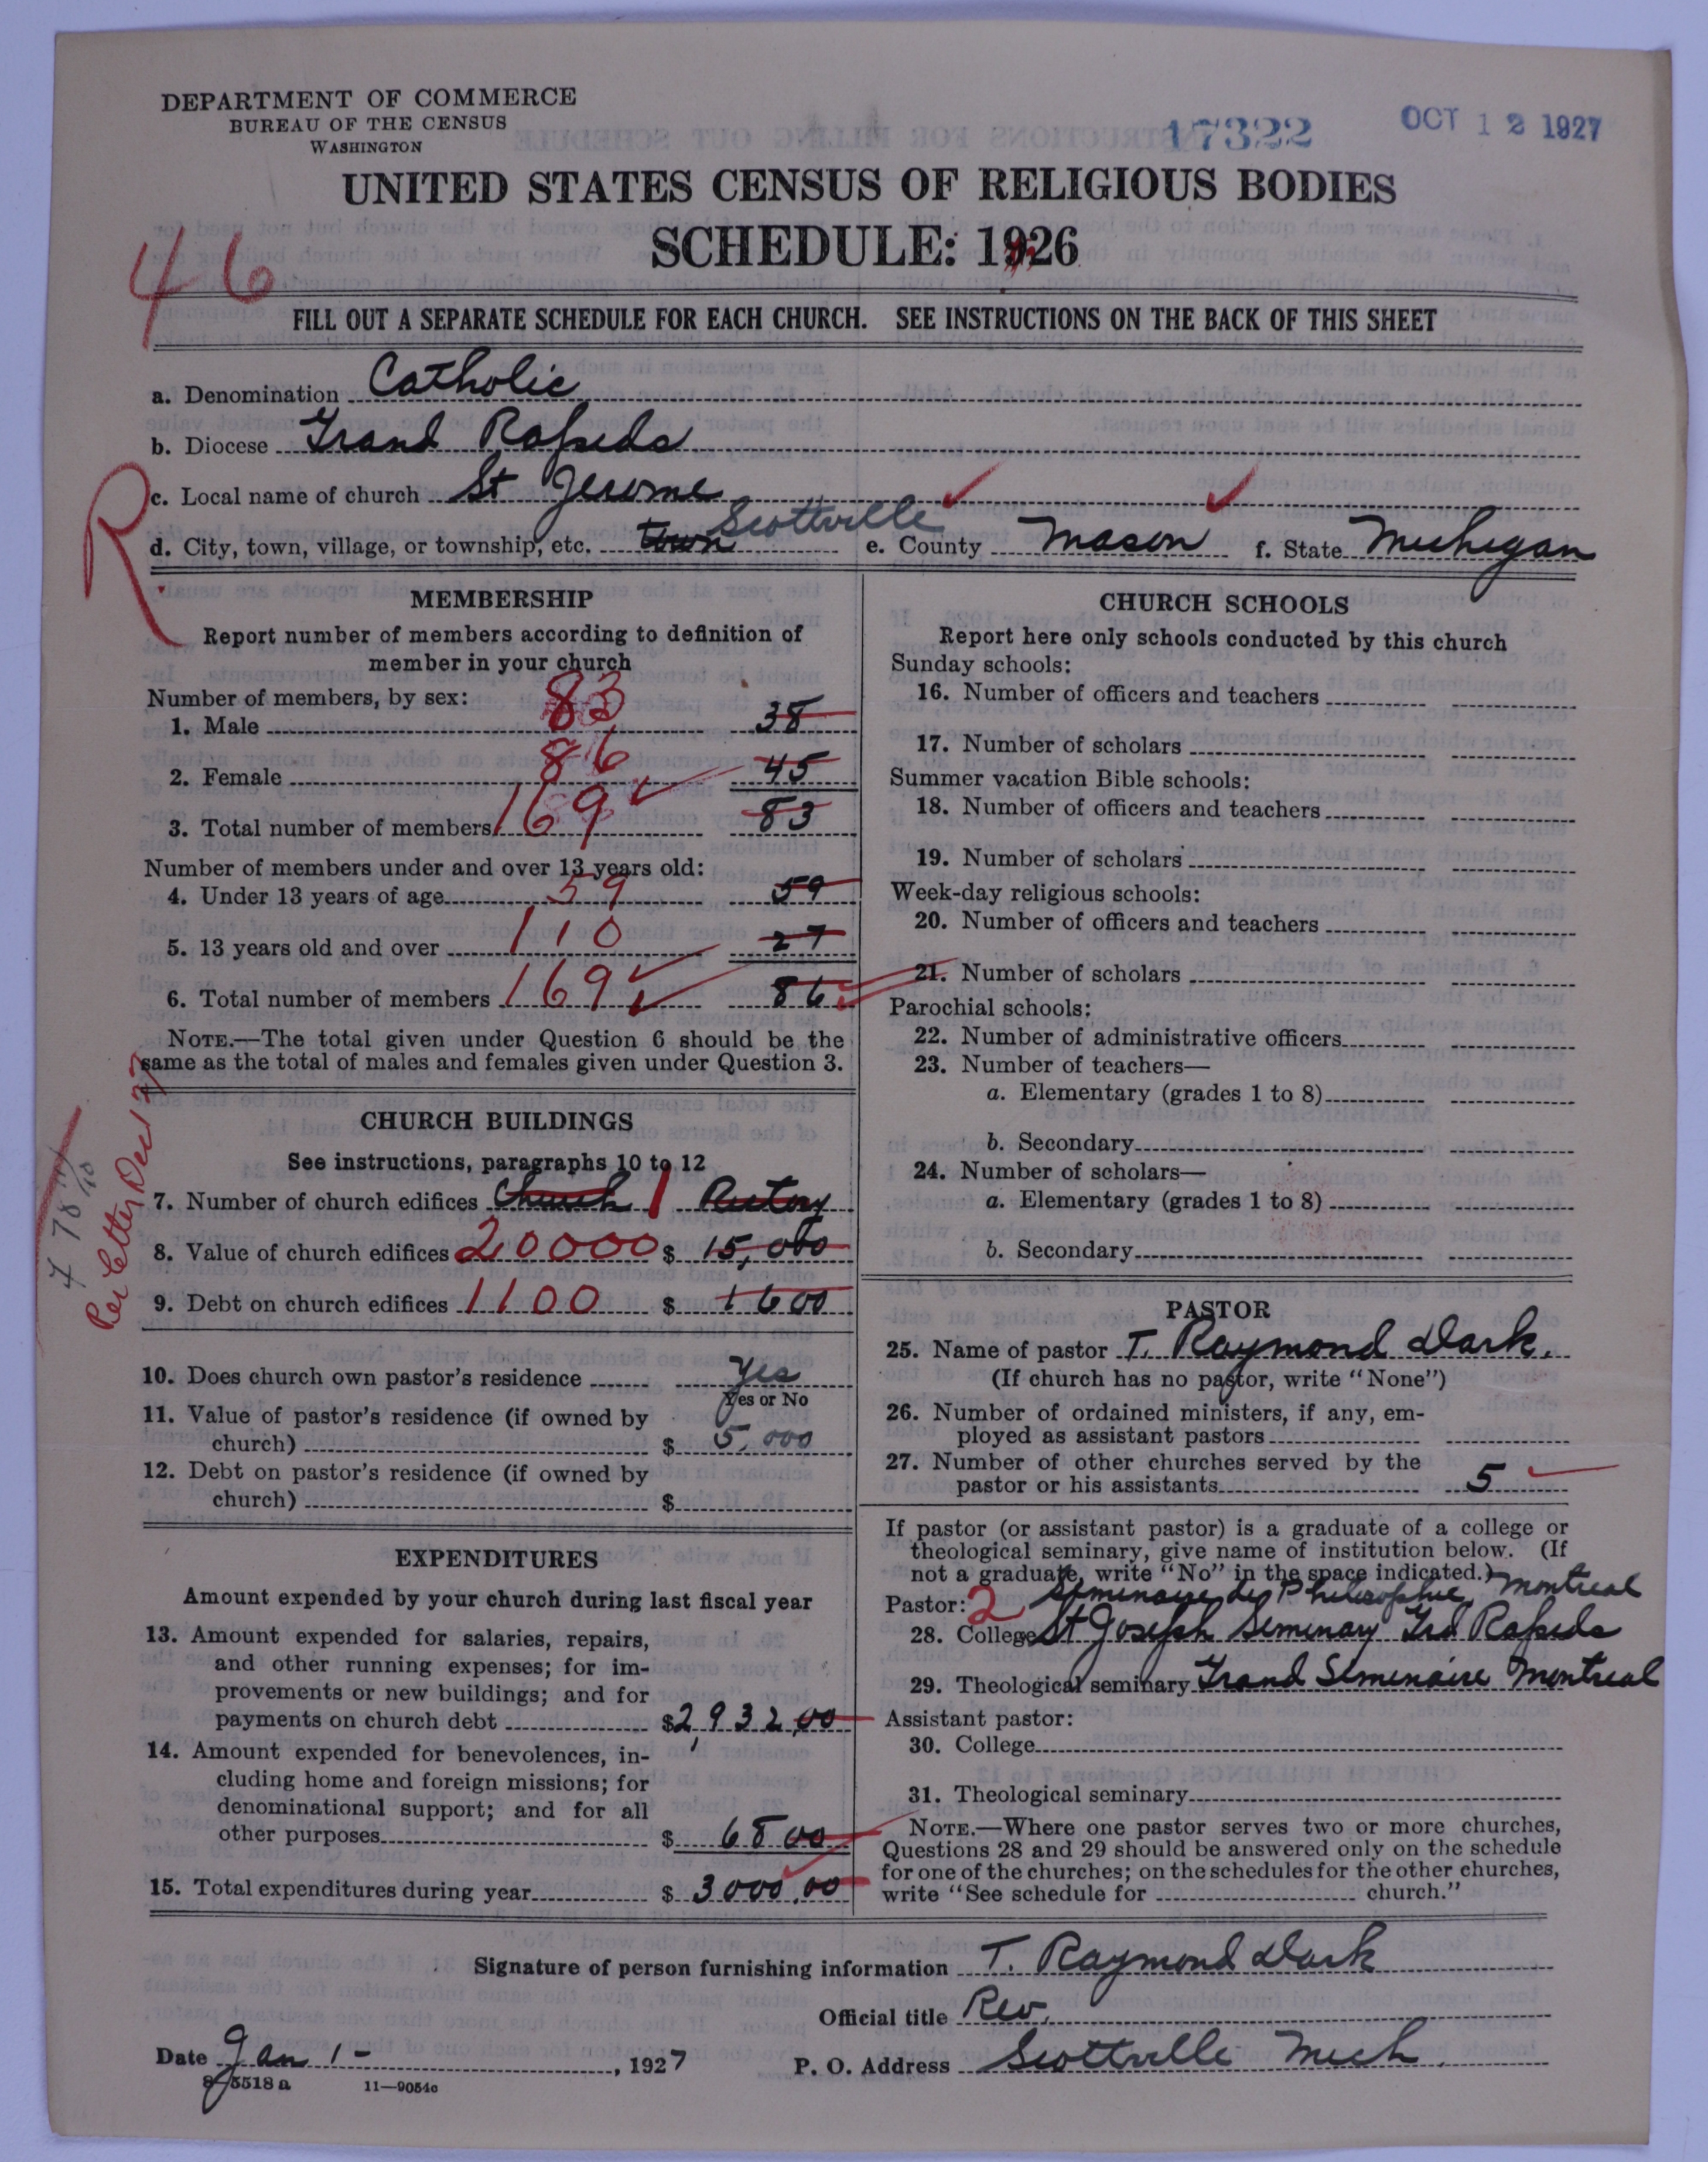 DEPARTMENT OF COMMERCE
BUREAU OF THE CENSUS
WASHINGTON
17322
OCT 12 1927
UNITED STATES CENSUS OF RELIGIOUS BODIES
SCHEDULE: 1926
46
FILL OUT A SEPARATE SCHEDULE FOR EACH CHURCH. SEE INSTRUCTIONS ON THE BACK OF THIS SHEET
a. Denomination Catholic
b. Diocese Grand Rapids
R
c. Local name of church St Jerome
d. City, town, village, or township, etc. town Scottville e. County Mason f. State Michigan
MEMBERSHIP
Report number of members according to definition of
member in your church
Number of members, by sex:
1. Male 83 38
2. Female 86 45
3. Total number of members 169 83
Number of members under and over 13 years old:
4. Under 13 years of age 59 59
5. 13 years old and over 110 27
6. Total number of members 169 86
NOTE.—The total given under Question 6 should be the
same as the total of males and females given under Question 3.
Per letter Dec 27
CHURCH BUILDINGS
See instructions, paragraphs 10 to 12
7. Number of church edifices Church 1 Rectory
8. Value of church edifices 20000 $ 15,000
9. Debt on church edifices 1100 $ 1600
10. Does church own pastor's residence Yes
Yes or No
11. Value of pastor's residence (if owned by
church) $ 5,000
12. Debt on pastor's residence (if owned by
church) $
EXPENDITURES
Amount expended by your church during last fiscal year
13. Amount expended for salaries, repairs,
and other running expenses; for im-
provements or new buildings; and for
payments on church debt $2,932,00
14. Amount expended for benevolences, in-
cluding home and foreign missions; for
denominational support; and for all
other purposes $ 68 00
15. Total expenditures during year $ 3000.00
CHURCH SCHOOLS
Report here only schools conducted by this church
Sunday schools:
16. Number of officers and teachers
17. Number of scholars
Summer vacation Bible schools:
18. Number of officers and teachers
19. Number of scholars
Week-day religious schools:
20. Number of officers and teachers
21. Number of scholars
Parochial schools:
22. Number of administrative officers
23. Number of teachers—
a. Elementary (grades 1 to 8)
b. Secondary
24. Number of scholars—
a. Elementary (grades 1 to 8)
b. Secondary
PASTOR
25. Name of pastor T. Raymond Dark.
(If church has no pastor, write "None")
26. Number of ordained ministers, if any, em-
ployed as assistant pastors
27. Number of other churches served by the
pastor or his assistants 5
If pastor (or assistant pastor) is a graduate of a college or
theological seminary, give name of institution below. (If
not a graduate, write "No" in the space indicated.)
Pastor: 2 Seminaire de Philosophie Montreal
28. College St Joseph Seminary Grd Rapids
29. Theological seminary Grand Seminaire Montreal
Assistant pastor:
30. College
31. Theological seminary
NOTE.—Where one pastor serves two or more churches,
Questions 28 and 29 should be answered only on the schedule
for one of the churches; on the schedules for the other churches,
write "See schedule for church."
Signature of person furnishing information T. Raymond Dark
Official title Rev.
Date Jan 1 - , 1927 P. O. Address Scottville Mich.
8-5518 a 11—9054c